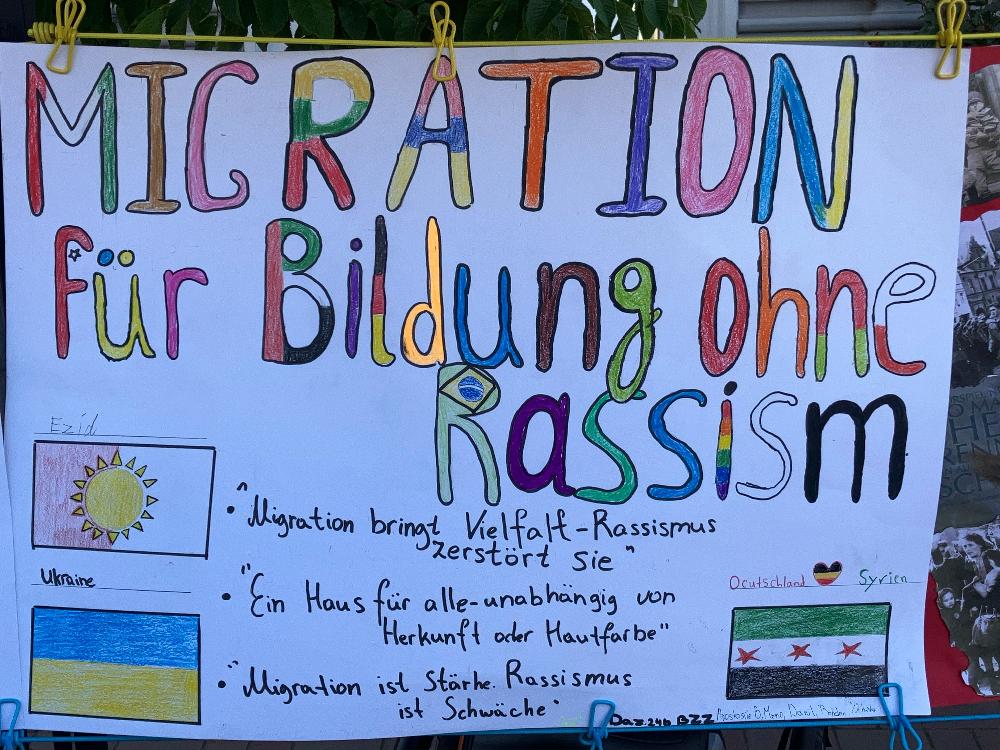 MIGRATION
für Bildung ohne
Rassism
Ezid
"Migration bringt Vielfalt-Rassismus
zerstört sie"
Ukraine
Deutschland Syrien
"Ein Haus für alle-unabhängig von
Herkunft oder Hautfarbe"
"Migration ist Stärke. Rassismus
ist Schwäche"
Daz.24b BZZ